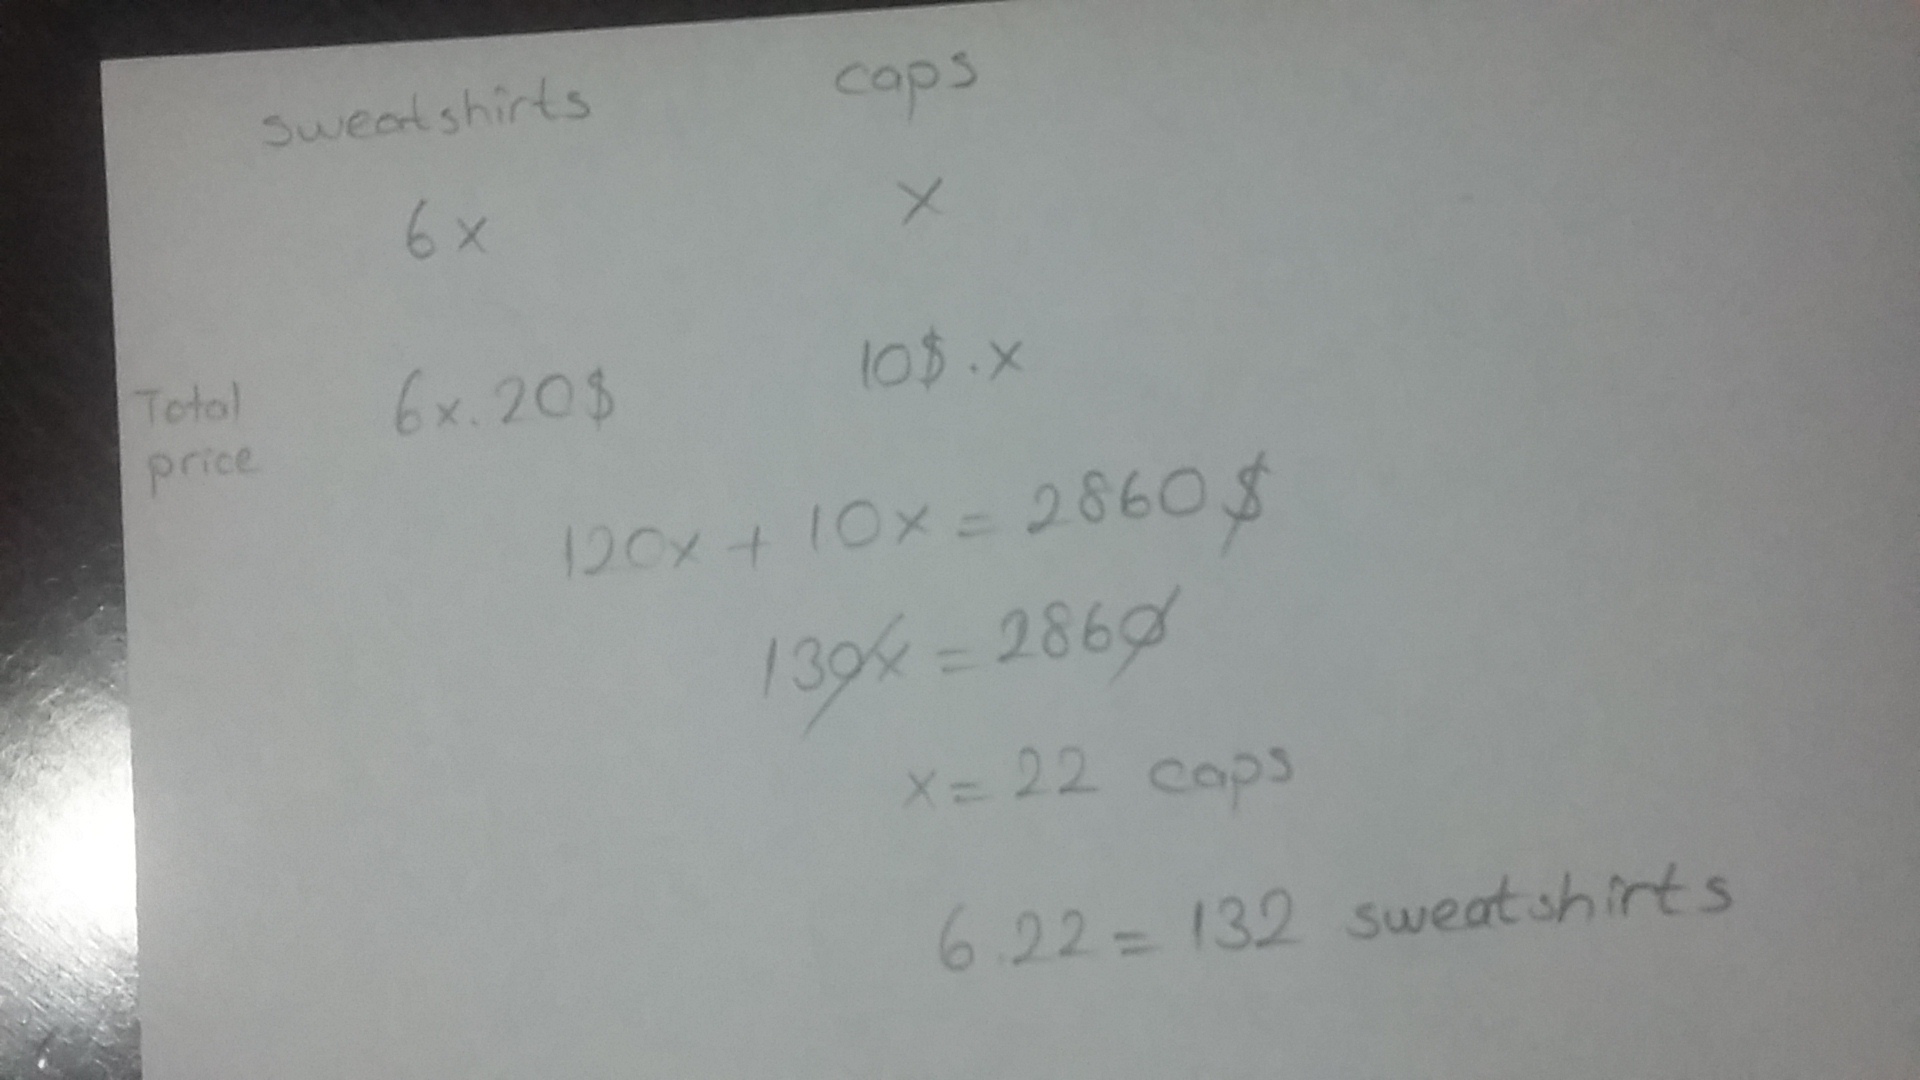 sweatshirts caps
6x x
Total price 6x.20$ 10$.x
120x + 10x = 2860$
130x = 2860
x = 22 caps
6.22 = 132 sweatshirts